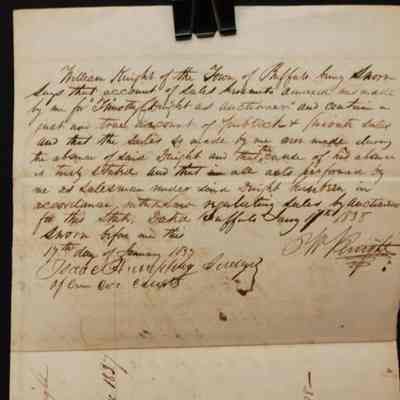 William Knight of the Town of Buffalo being Sworn
Says that account of sales hereunto annexed was made
by me for Timothy Dwight as auctioneer and contain a
just and true account of publick & private sales
and that the sales so made by me was made during
the absence of said Dwight and that the cause of his absence
is truly Stated and that all acts performed by
me as salesman under said Dwight have been in
accordance with law regulating sales by auctioneers
for this State. Dated Buffalo Jany 17th 1838
Sworn before me this
17th day of January 183
Isaac Humphrey
of